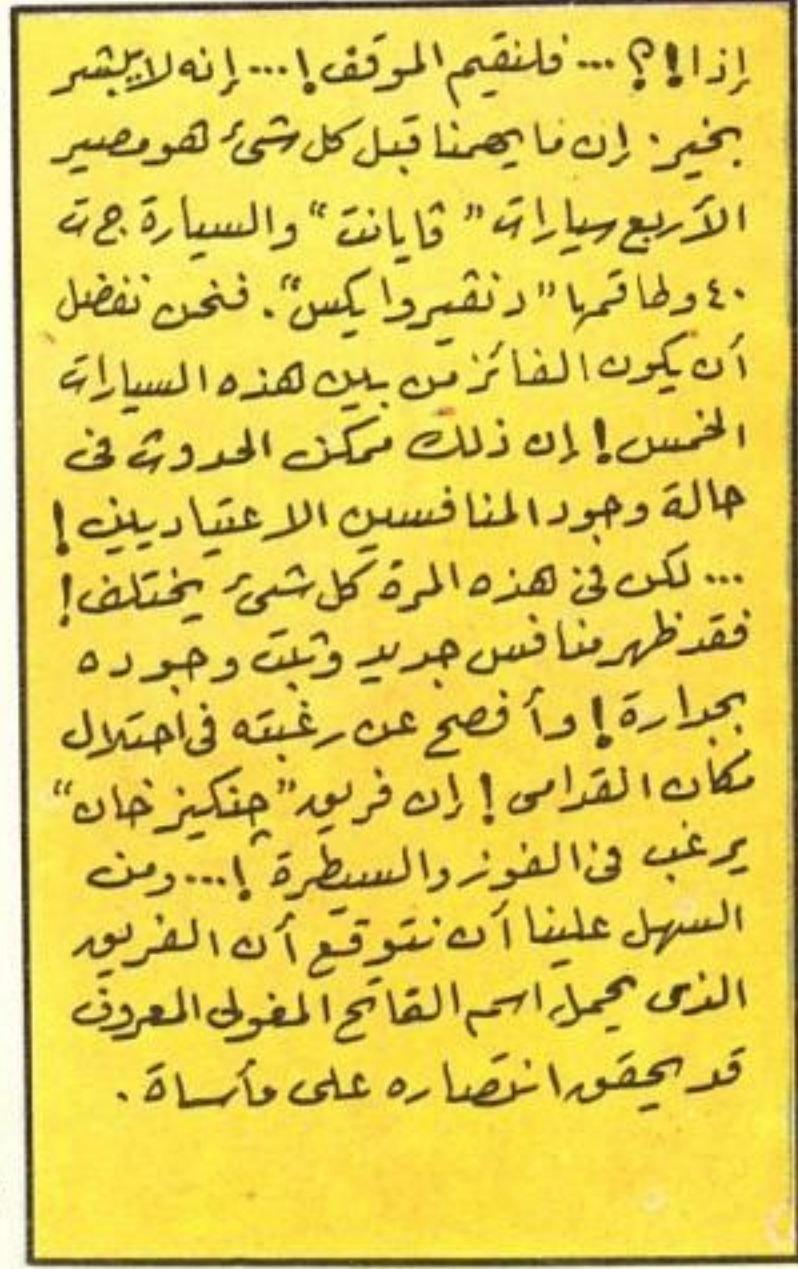 إذا!؟ ... فلنقيم الموقف! ... إنه لا يبشر
بخير. إن ما يهمنا قبل كل شئ هو مصير
الأربع سيارات "ڤايانت" والسيارة ج ت
٤٠ وطاقمها "دنڤيروايكس". فنحن نفضل
أن يكون الفائز من بين هذه السيارات
الخمس! إن ذلك ممكن الحدوث فى
حالة وجود المنافسين الاعتياديين!
... لكن فى هذه المرة كل شئ يختلف!
فقد ظهر منافس جديد وثبت وجوده
بجدارة! وأفصح عن رغبته فى احتلال
مكان القدامى! إن فريق "چنكيز خان"
يرغب فى الفوز والسيطرة! ... ومن
السهل علينا أن نتوقع أن الفريق
الذى يحمل اسم الفاتح المغولى المعروف
قد يحقق انتصاره على مأساة.